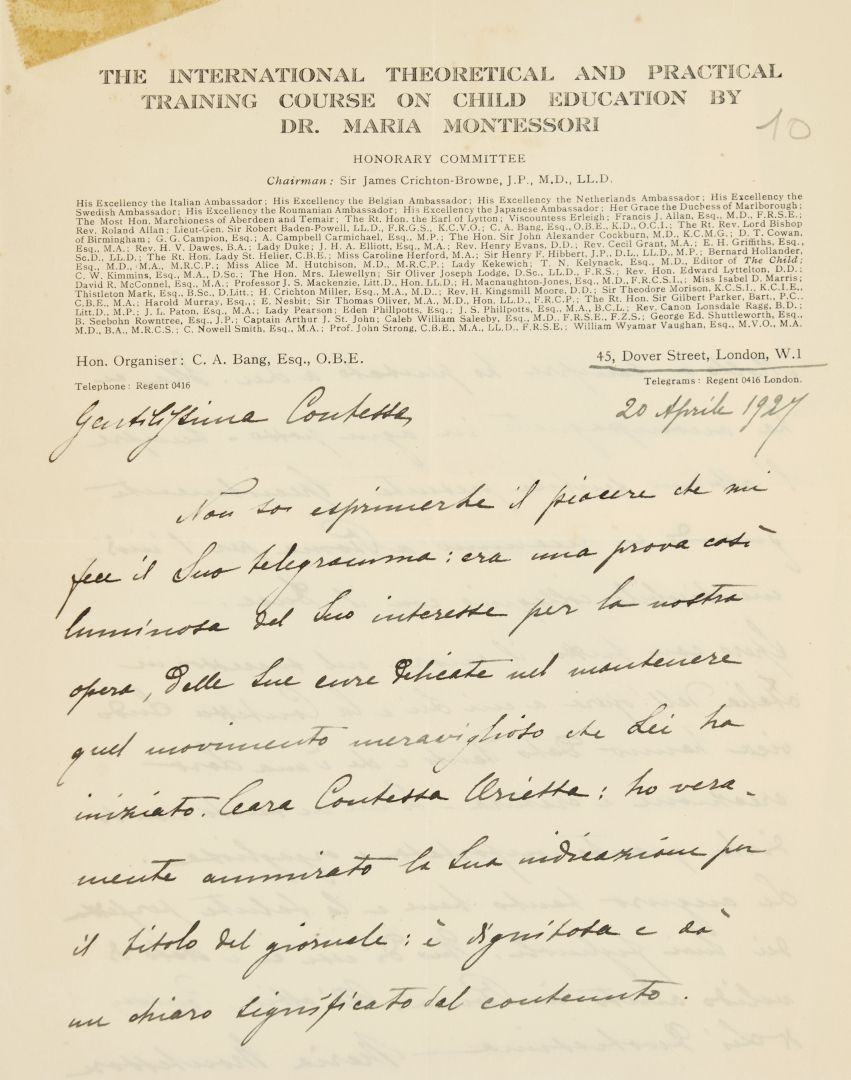 THE INTERNATIONAL THEORETICAL AND PRACTICAL
TRAINING COURSE ON CHILD EDUCATION BY
DR. MARIA MONTESSORI
10
HONORARY COMMITTEE
Chairman: Sir James Crichton-Browne, J.P., M.D., LL.D.
His Excellency the Italian Ambassador; His Excellency the Belgian Ambassador; His Excellency the Netherlands Ambassador; His Excellency the
Swedish Ambassador; His Excellency the Roumanian Ambassador; His Excellency the Japanese Ambassador; Her Grace the Duchess of Marlborough;
The Most Hon. Marchioness of Aberdeen and Temair; The Rt. Hon. the Earl of Lytton; Viscountess Erleigh; Francis J. Allan, Esq., M.D., F.R.S.E.;
Rev. Roland Allan; Lieut-Gen. Sir Robert Baden-Powell, LL.D., F.R.G.S., K.C.V.O.; C. A. Bang, Esq., O.B.E., K.D., O.C.I.; The Rt. Rev. Lord Bishop
of Birmingham; G. G. Campion, Esq.; A. Campbell Carmichael, Esq., M.P.; The Hon. Sir John Alexander Cockburn, M.D., K.C.M.G.; D. T. Cowan,
Esq., M.A.; Rev. H. V. Dawes, B.A.; Lady Duke; J. H. A. Elliott, Esq., M.A.; Rev. Henry Evans, D.D.; Rev. Cecil Grant, M.A.; E. H. Griffiths, Esq.,
Sc.D., LL.D.; The Rt. Hon. Lady St. Helier, C.B.E.; Miss Caroline Herford, M.A.; Sir Henry F. Hibbert, J.P., D.L., LL.D., M.P.; Bernard Hollander,
Esq., M.D., M.A., M.R.C.P.; Miss Alice M. Hutchison, M.D., M.R.C.P.; Lady Kekewich; T. N. Kelynack, Esq., M.D., Editor of The Child;
C. W. Kimmins, Esq., M.A., D.Sc.; The Hon. Mrs. Llewellyn; Sir Oliver Joseph Lodge, D.Sc., LL.D., F.R.S.; Rev. Hon. Edward Lyttelton, D.D.;
David R. McConnel, Esq., M.A.; Professor J. S. Mackenzie, Litt.D., Hon. LL.D.; H. Macnaughton-Jones, Esq., M.D., F.R.C.S.I.; Miss Isabel D. Marris;
Thistleton Mark, Esq., B.Sc., D.Litt.; H. Crichton Miller, Esq., M.A., M.D.; Rev. H. Kingsmill Moore, D.D.; Sir Theodore Morison, K.C.S.I., K.C.I.E.,
C.B.E., M.A.; Harold Murray, Esq.,; E. Nesbit; Sir Thomas Oliver, M.A., M.D., Hon. LL.D., F.R.C.P.; The Rt. Hon. Sir Gilbert Parker, Bart., P.C.,
Litt.D., M.P.; J. L. Paton, Esq., M.A.; Lady Pearson; Eden Phillpotts, Esq.; J. S. Phillpotts, Esq., M.A., B.C.L.; Rev. Canon Lonsdale Ragg, B.D.;
B. Seebohm Rowntree, Esq., J.P.; Captain Arthur J. St. John; Caleb William Saleeby, Esq., M.D., F.R.S.E., F.Z.S.; George Ed. Shuttleworth, Esq.,
M.D., B.A., M.R.C.S.; C. Nowell Smith, Esq., M.A.; Prof. John Strong, C.B.E., M.A., LL.D., F.R.S.E.; William Wyamar Vaughan, Esq., M.V.O., M.A.
Hon. Organiser: C. A. Bang, Esq., O.B.E.
45, Dover Street, London, W.1
Telephone: Regent 0416
Telegrams: Regent 0416 London.
20 Aprile 1927
Gentilissima Contessa,
Non so esprimerle il piacere che mi
fece il Suo telegramma: era una prova così
luminosa del Suo interesse per la nostra
opera, delle Sue cure delicate nel mantenere
quel movimento meraviglioso che Lei ha
iniziato. Cara Contessa Orietta: ho vera-
mente ammirato la Sua indicazione per
il titolo del giornale: è dignitosa e dà
un chiaro significato del contenuto.